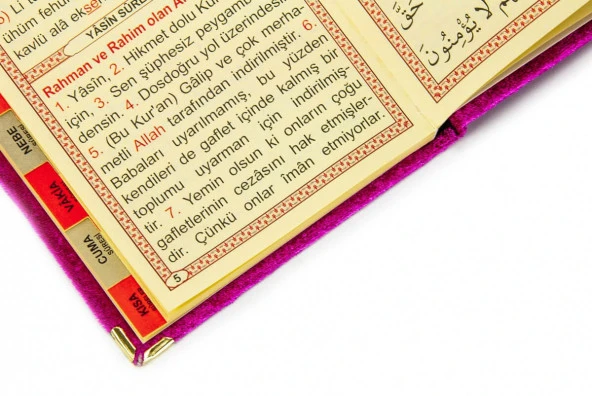 ühum fehum
kavlü alâ ekse
YÂSÎN SÛRE
Rahman ve Rahim olan A
1. Yâsîn, 2. Hikmet dolu Kur
için, 3. Sen şüphesiz peygambe
densin. 4. Dosdoğru yol üzerindesin
5. (Bu Kur'an) Gâlip ve çok merha-
metli Allah tarafından indirilmiştir. 6.
Babaları uyarılmamış, bu yüzden
kendileri de gaflet içinde kalmış bir
toplumu uyarman için indirilmiş-
tir. 7. Yemin olsun ki onların çoğu
gafletlerinin cezasını hak etmişler-
dir. Çünkü onlar îmân etmiyorlar.
5
NEBE
VÂKIA
CUMA
SÛRESİ
KISA
حَقَّ
لَا يُؤْمِنُونَ